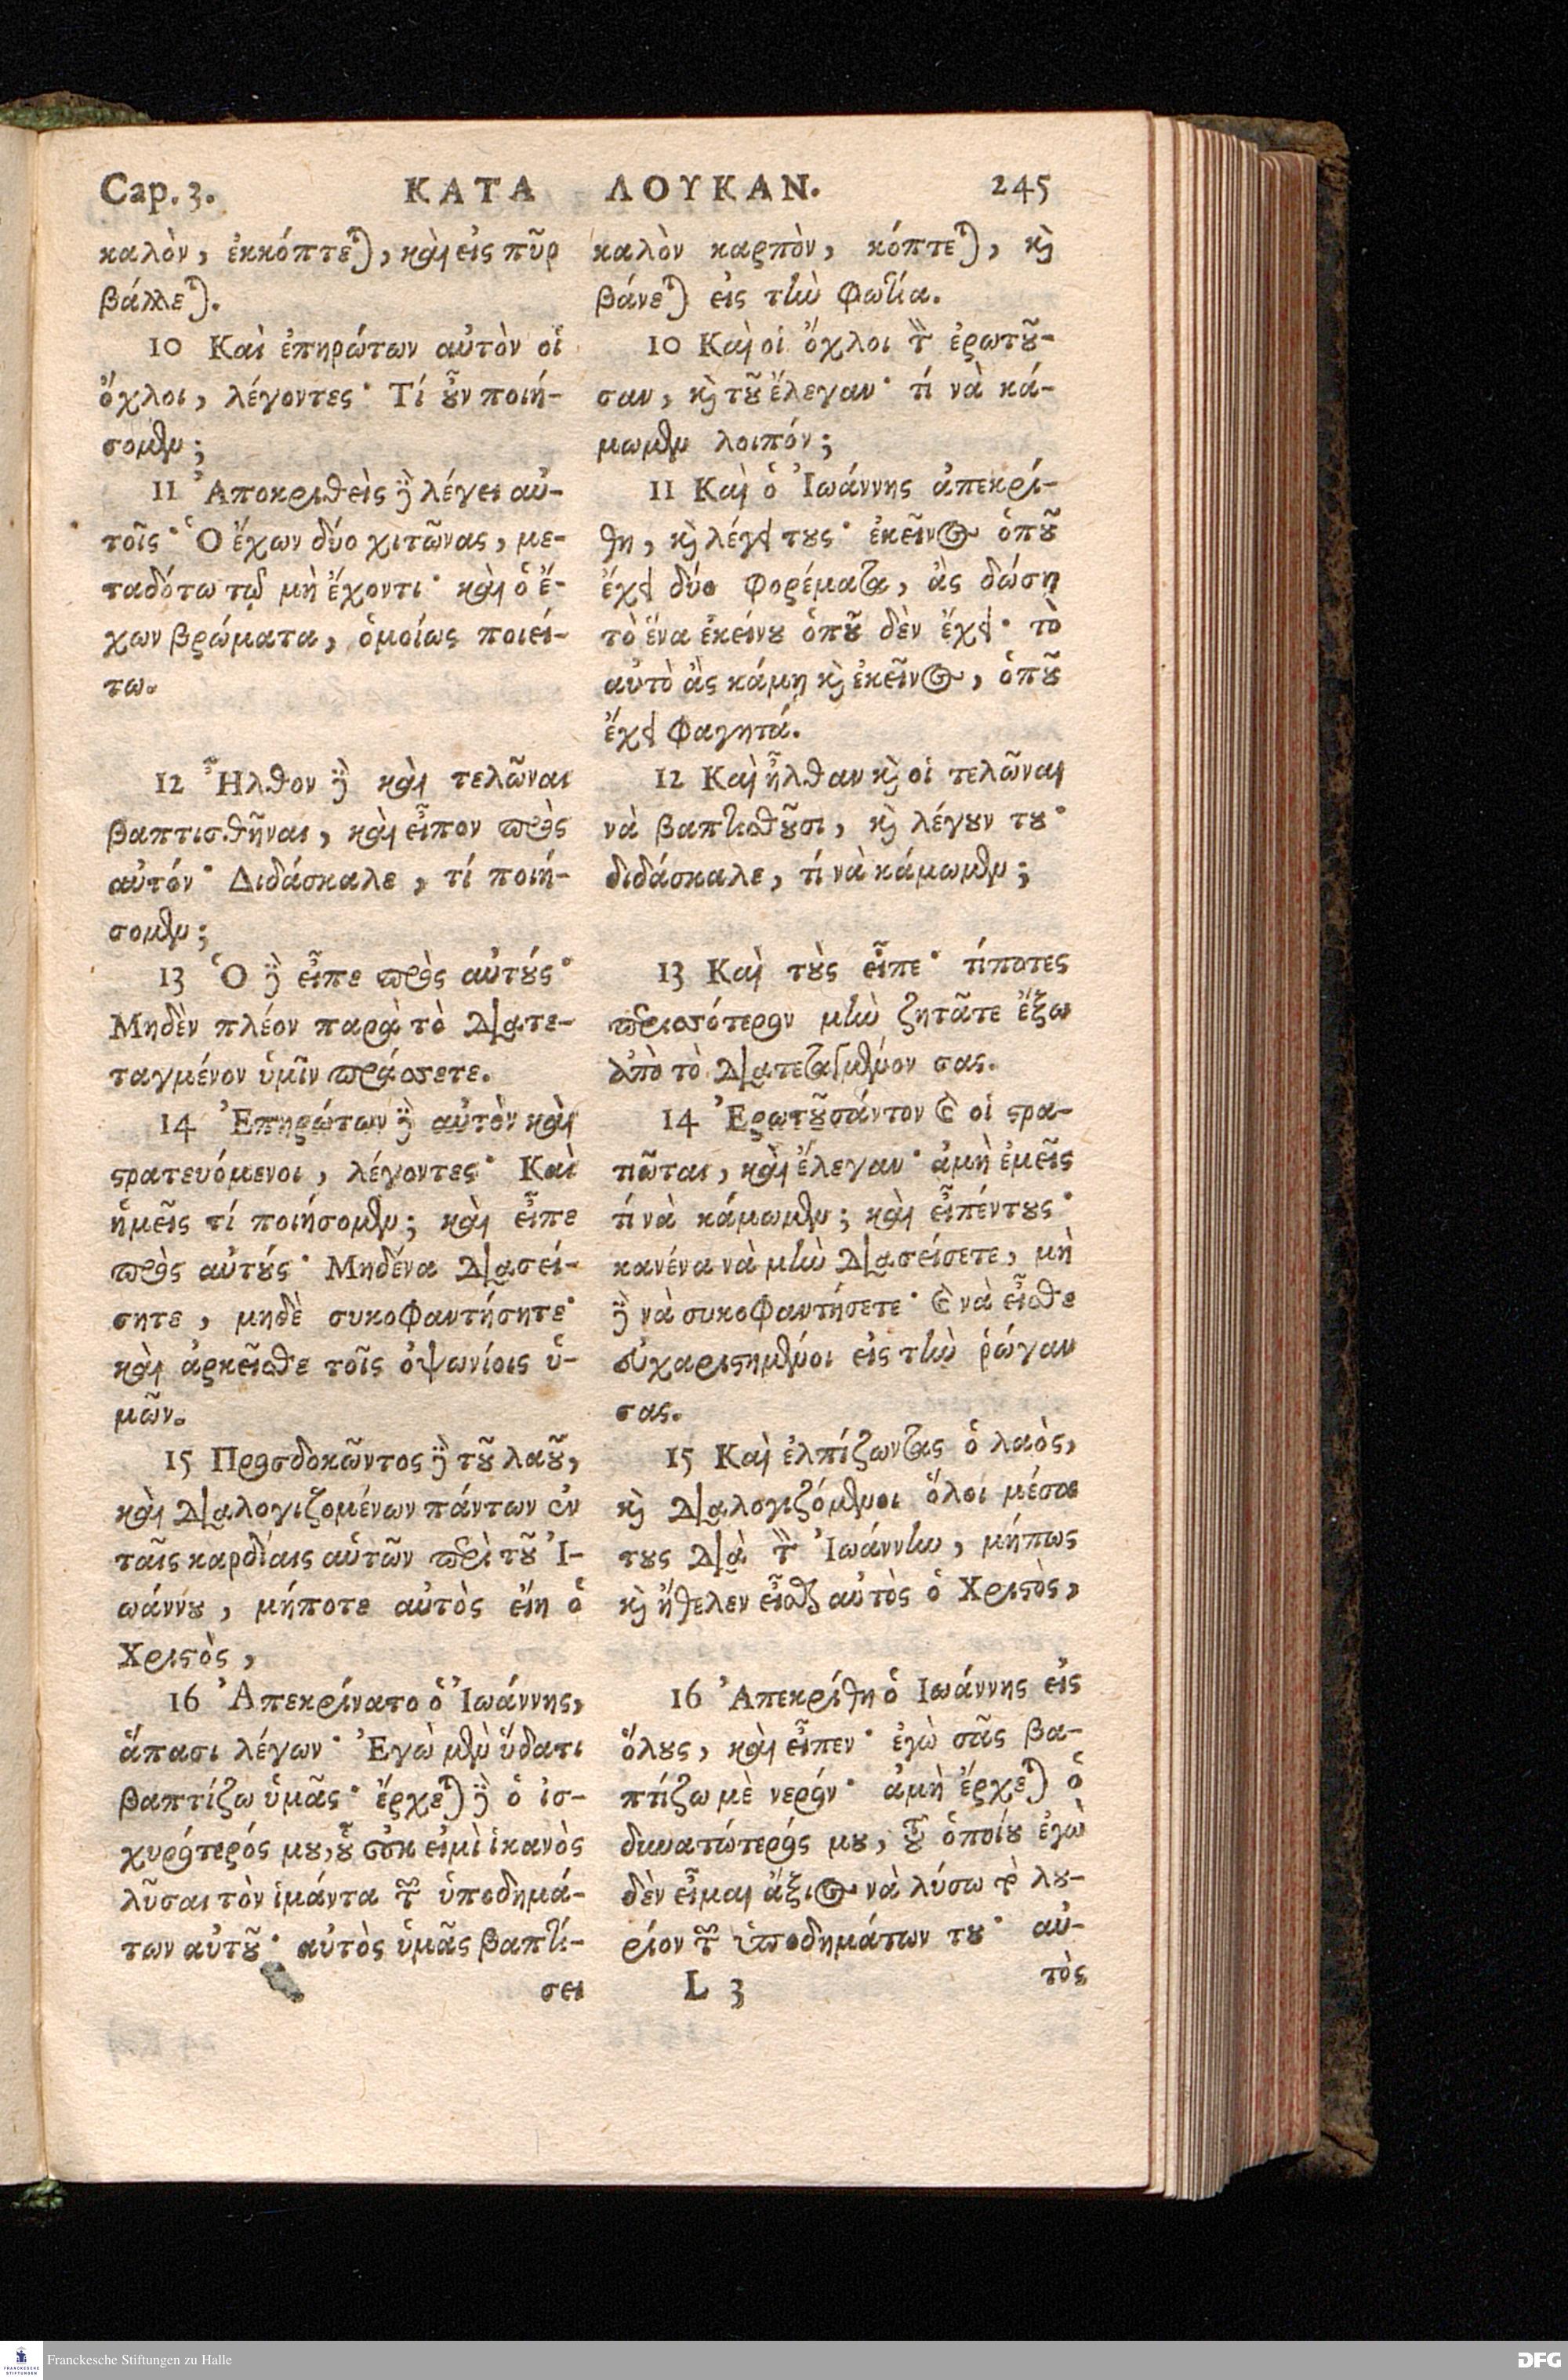 Cap. 3. ΚΑΤΑ ΛΟΥΚΑΝ. 245
καλὸν, ἐκκόπτεται, καὶ εἰς πῦρ
βάλλεται.
10 Καὶ ἐπηρώτων αὐτὸν οἱ
ὄχλοι, λέγοντες· Τί ȣ̓͂ν ποιή-
σομεν;
11 Ἀποκριθεὶς δὲ λέγει αὐ-
τοῖς· Ὁ ἔχων δύο χιτῶνας, με-
ταδότω τῷ μὴ ἔχοντι· καὶ ὁ ἔ-
χων βρώματα, ὁμοίως ποιεί-
τω.
12 Ἦλθον δὲ καὶ τελῶναι
βαπτισθῆναι, καὶ εἶπον πρὸς
αὐτόν· Διδάσκαλε, τί ποιή-
σομεν;
13 Ὁ δὲ εἶπε πρὸς αὐτȣ́ς·
Μηδὲν πλέον παρὰ τὸ διατε-
ταγμένον ὑμῖν πράσσετε.
14 Ἐπηρώτων δὲ αὐτὸν καὶ
ϛρατευόμενοι, λέγοντες· Καὶ
ἡμεῖς τί ποιήσομεν; καὶ εἶπε
πρὸς αὐτȣ́ς· Μηδένα διασεί-
σητε, μηδὲ συκοφαντήσητε·
καὶ ἀρκεῖσθε τοῖς ὀψωνίοις ὑ-
μῶν.
15 Προσδοκῶντος δὲ τȣ͂ λαȣ͂,
καὶ διαλογιζομένων πάντων ἐν
ταῖς καρδίαις αὑτῶν περὶ τȣ͂ Ἰ-
ωάννȣ, μήποτε αὐτὸς εἴη ὁ
Χριϛὸς,
16 Ἀπεκρίνατο ὁ Ἰωάννης,
ἅπασι λέγων· Ἐγὼ μὲν ὕδατι
βαπτίζω ὑμᾶς· ἔρχεται δὲ ὁ ἰσ-
χυρότερός μȣ, ȣ̔͂ οὐκ εἰμὶ ἱκανὸς
λῦσαι τὸν ἱμάντα τῶν ὑποδημά-
των αὐτȣ͂· αὐτὸς ὑμᾶς βαπτί-
σει
καλὸν καρπὸν, κόπτεται, καὶ
βάνεται εἰς τὴν φωτία.
10 Καὶ οἱ ὄχλοι τὸν ἐρωτȣ͂-
σαν, καὶ τȣ͂ ἔλεγαν· τί νὰ κά-
μωμεν λοιπόν;
11 Καὶ ὁ Ἰωάννης ἀπεκρί-
θη, καὶ λέγει τȣς· ἐκεῖνος ὁπȣ͂
ἔχει δύο φορέματα, ἂς δώσῃ
τὸ ἕνα ἐκείνȣ ὁπȣ͂ δὲν ἔχει· τὸ
αὐτὸ ἂς κάμῃ καὶ ἐκεῖνος, ὁπȣ͂
ἔχει φαγητά.
12 Καὶ ἦλθαν καὶ οἱ τελῶναι
νὰ βαπτισθȣ͂σι, καὶ λέγȣν τȣ·
διδάσκαλε, τί νὰ κάμωμεν;
13 Καὶ τȣ̀ς εἶπε· τίποτες
περισσότερον μὴν ζητᾶτε ἔξω
ἀπὸ τὸ διατεταγμένον σας.
14 Ἐρωτȣ͂σάντον καὶ οἱ ϛρα-
τιῶται, καὶ ἔλεγαν· ἀμὴ ἐμεῖς
τί νὰ κάμωμεν; καὶ εἶπέντȣς·
κανένα νὰ μὴν διασείσετε, μὴ
δὲ νὰ συκοφαντήσετε· καὶ νὰ εἶσθε
εὐχαριϛημένοι εἰς τὴν ῥόγαν
σας.
15 Καὶ ἐλπίζωντας ὁ λαὸς,
καὶ διαλογιζόμενοι ὅλοι μέσα
τȣς διὰ τὸν Ἰωάννην, μήπως
καὶ ἤθελεν εἶσθαι αὐτὸς ὁ Χριϛὸς,
16 Ἀπεκρίθη ὁ Ἰωάννης εἰς
ὅλȣς, καὶ εἶπεν· ἐγὼ σᾶς βα-
πτίζω μὲ νερόν· ἀμὴ ἔρχεται ὁ
δυνατώτερός μȣ, τȣ͂ ὁποίȣ ἐγὼ
δὲν εἶμαι ἄξιος νὰ λύσω τὸ λȣ-
ρίον τῶν ὑποδημάτων τȣ· αὐ-
τὸς
L 3
Franckesche Stiftungen zu Halle
DFG